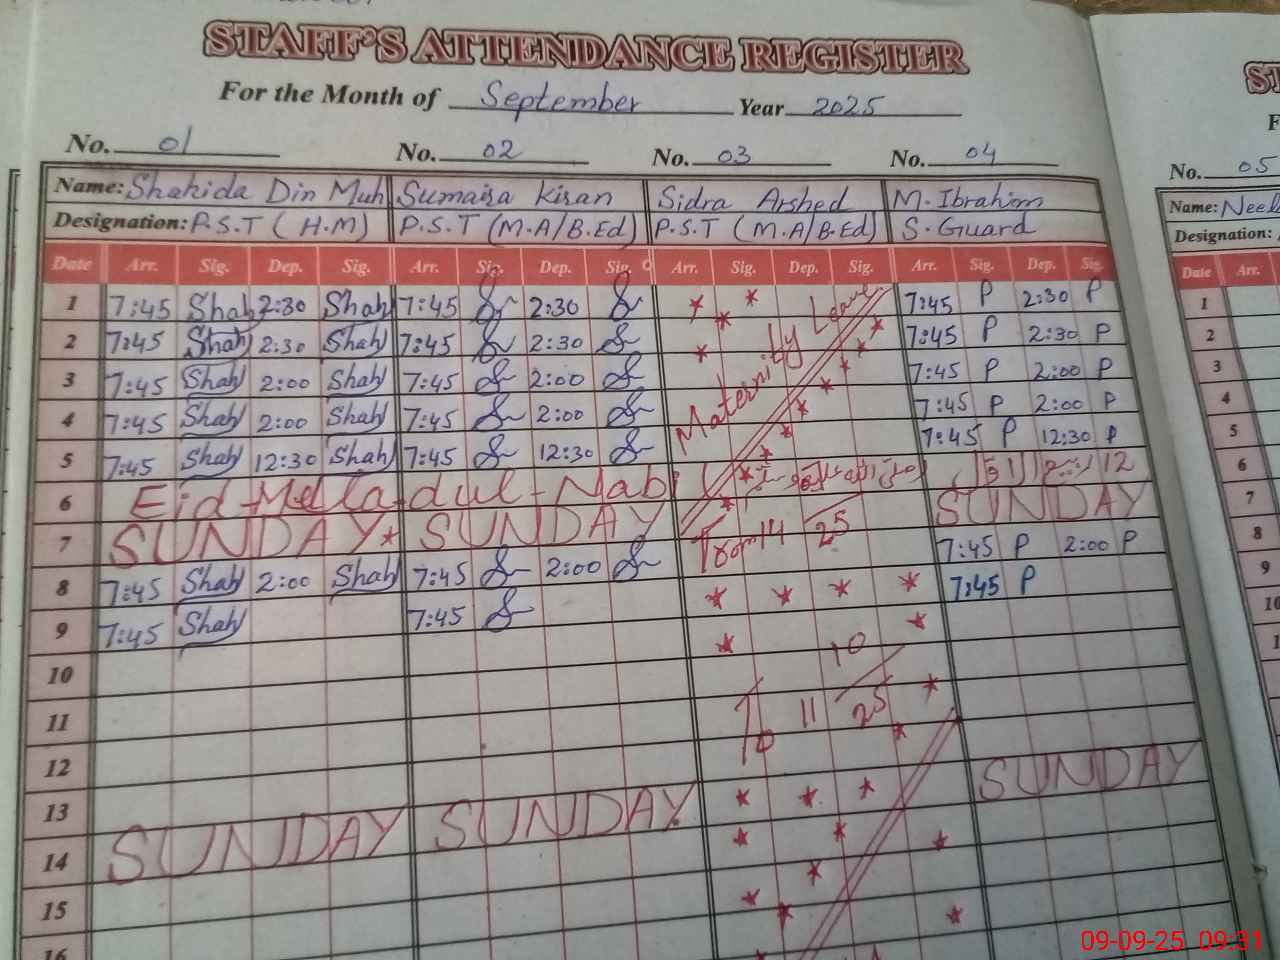 STAFF'S ATTENDANCE REGISTER
For the Month of September Year 2025
No. 01 No. 02 No. 03 No. 04
No. 05
Name: Shahida Din Muh Sumaira Kiran Sidra Arshed M. Ibrahim
Name: Neel
Designation: P.S.T (H.M) P.S.T (M.A/B.Ed) P.S.T (M.A/B.Ed) S. Guard
Designation:
Date Arr. Sig. Dep. Sig. Arr. Sig. Dep. Sig. Arr. Sig. Dep. Sig. Arr. Sig. Dep. Sig.
Date Arr.
1 7:45 Shah 2:30 Shah 7:45 2:30 7:45 P 2:30 P
2 7:45 Shah 2:30 Shah 7:45 2:30 7:45 P 2:30 P
3 7:45 Shah 2:00 Shah 7:45 2:00 7:45 P 2:00 P
4 7:45 Shah 2:00 Shah 7:45 2:00 7:45 P 2:00 P
5 7:45 Shah 12:30 Shah 7:45 12:30 7:45 P 12:30 P
Maternity Leave
6 Eid-Mella-dul-Nabi 12
7 SUNDAY SUNDAY SUNDAY
From 14 25
8 7:45 Shah 2:00 Shah 7:45 2:00 7:45 P 2:00 P
9 7:45 Shah 7:45 7:45 P
10
11
To 11 10 25
12
13
14 SUNDAY SUNDAY SUNDAY
15
16
1
2
3
4
5
6
7
8
9
10
09-09-25 09:31